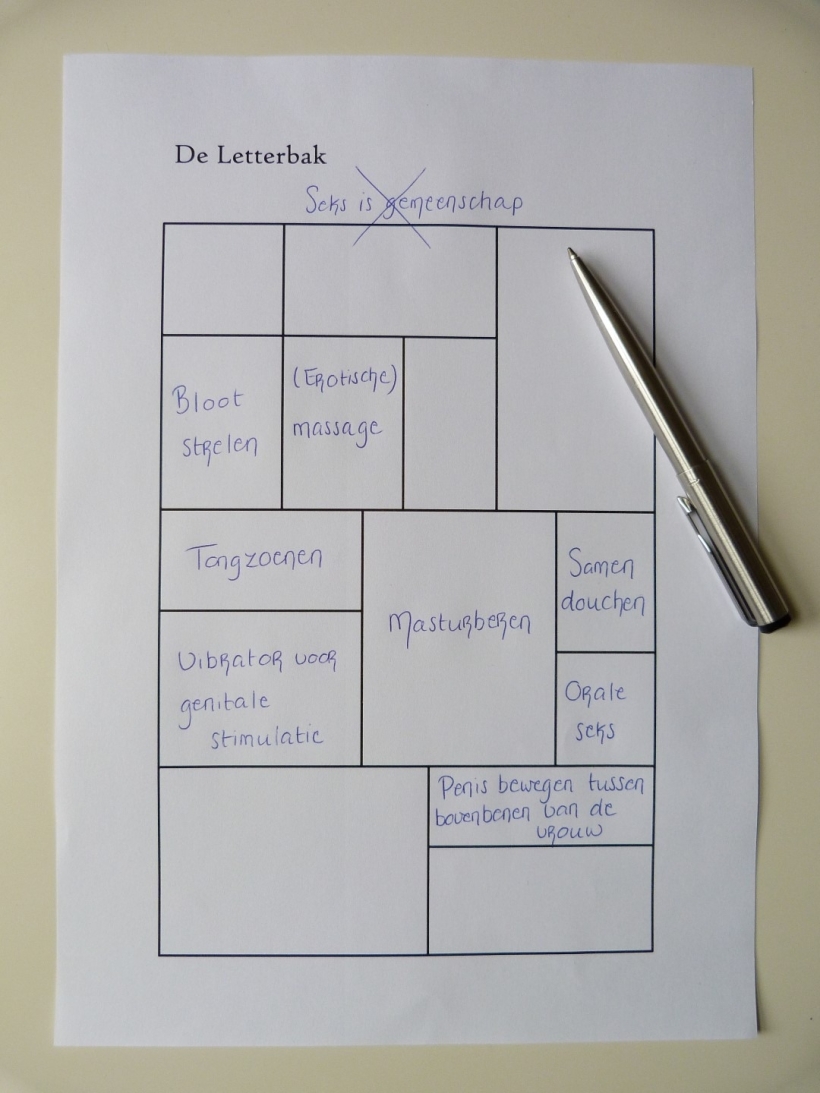 De Letterbak
Seks is gemeenschap
Bloot
strelen
(Erotische)
massage
Tongzoenen
Vibrator voor
genitale
stimulatie
Masturberen
Samen
douchen
Orale
seks
Penis bewegen tussen
bovenbenen van de
vrouw